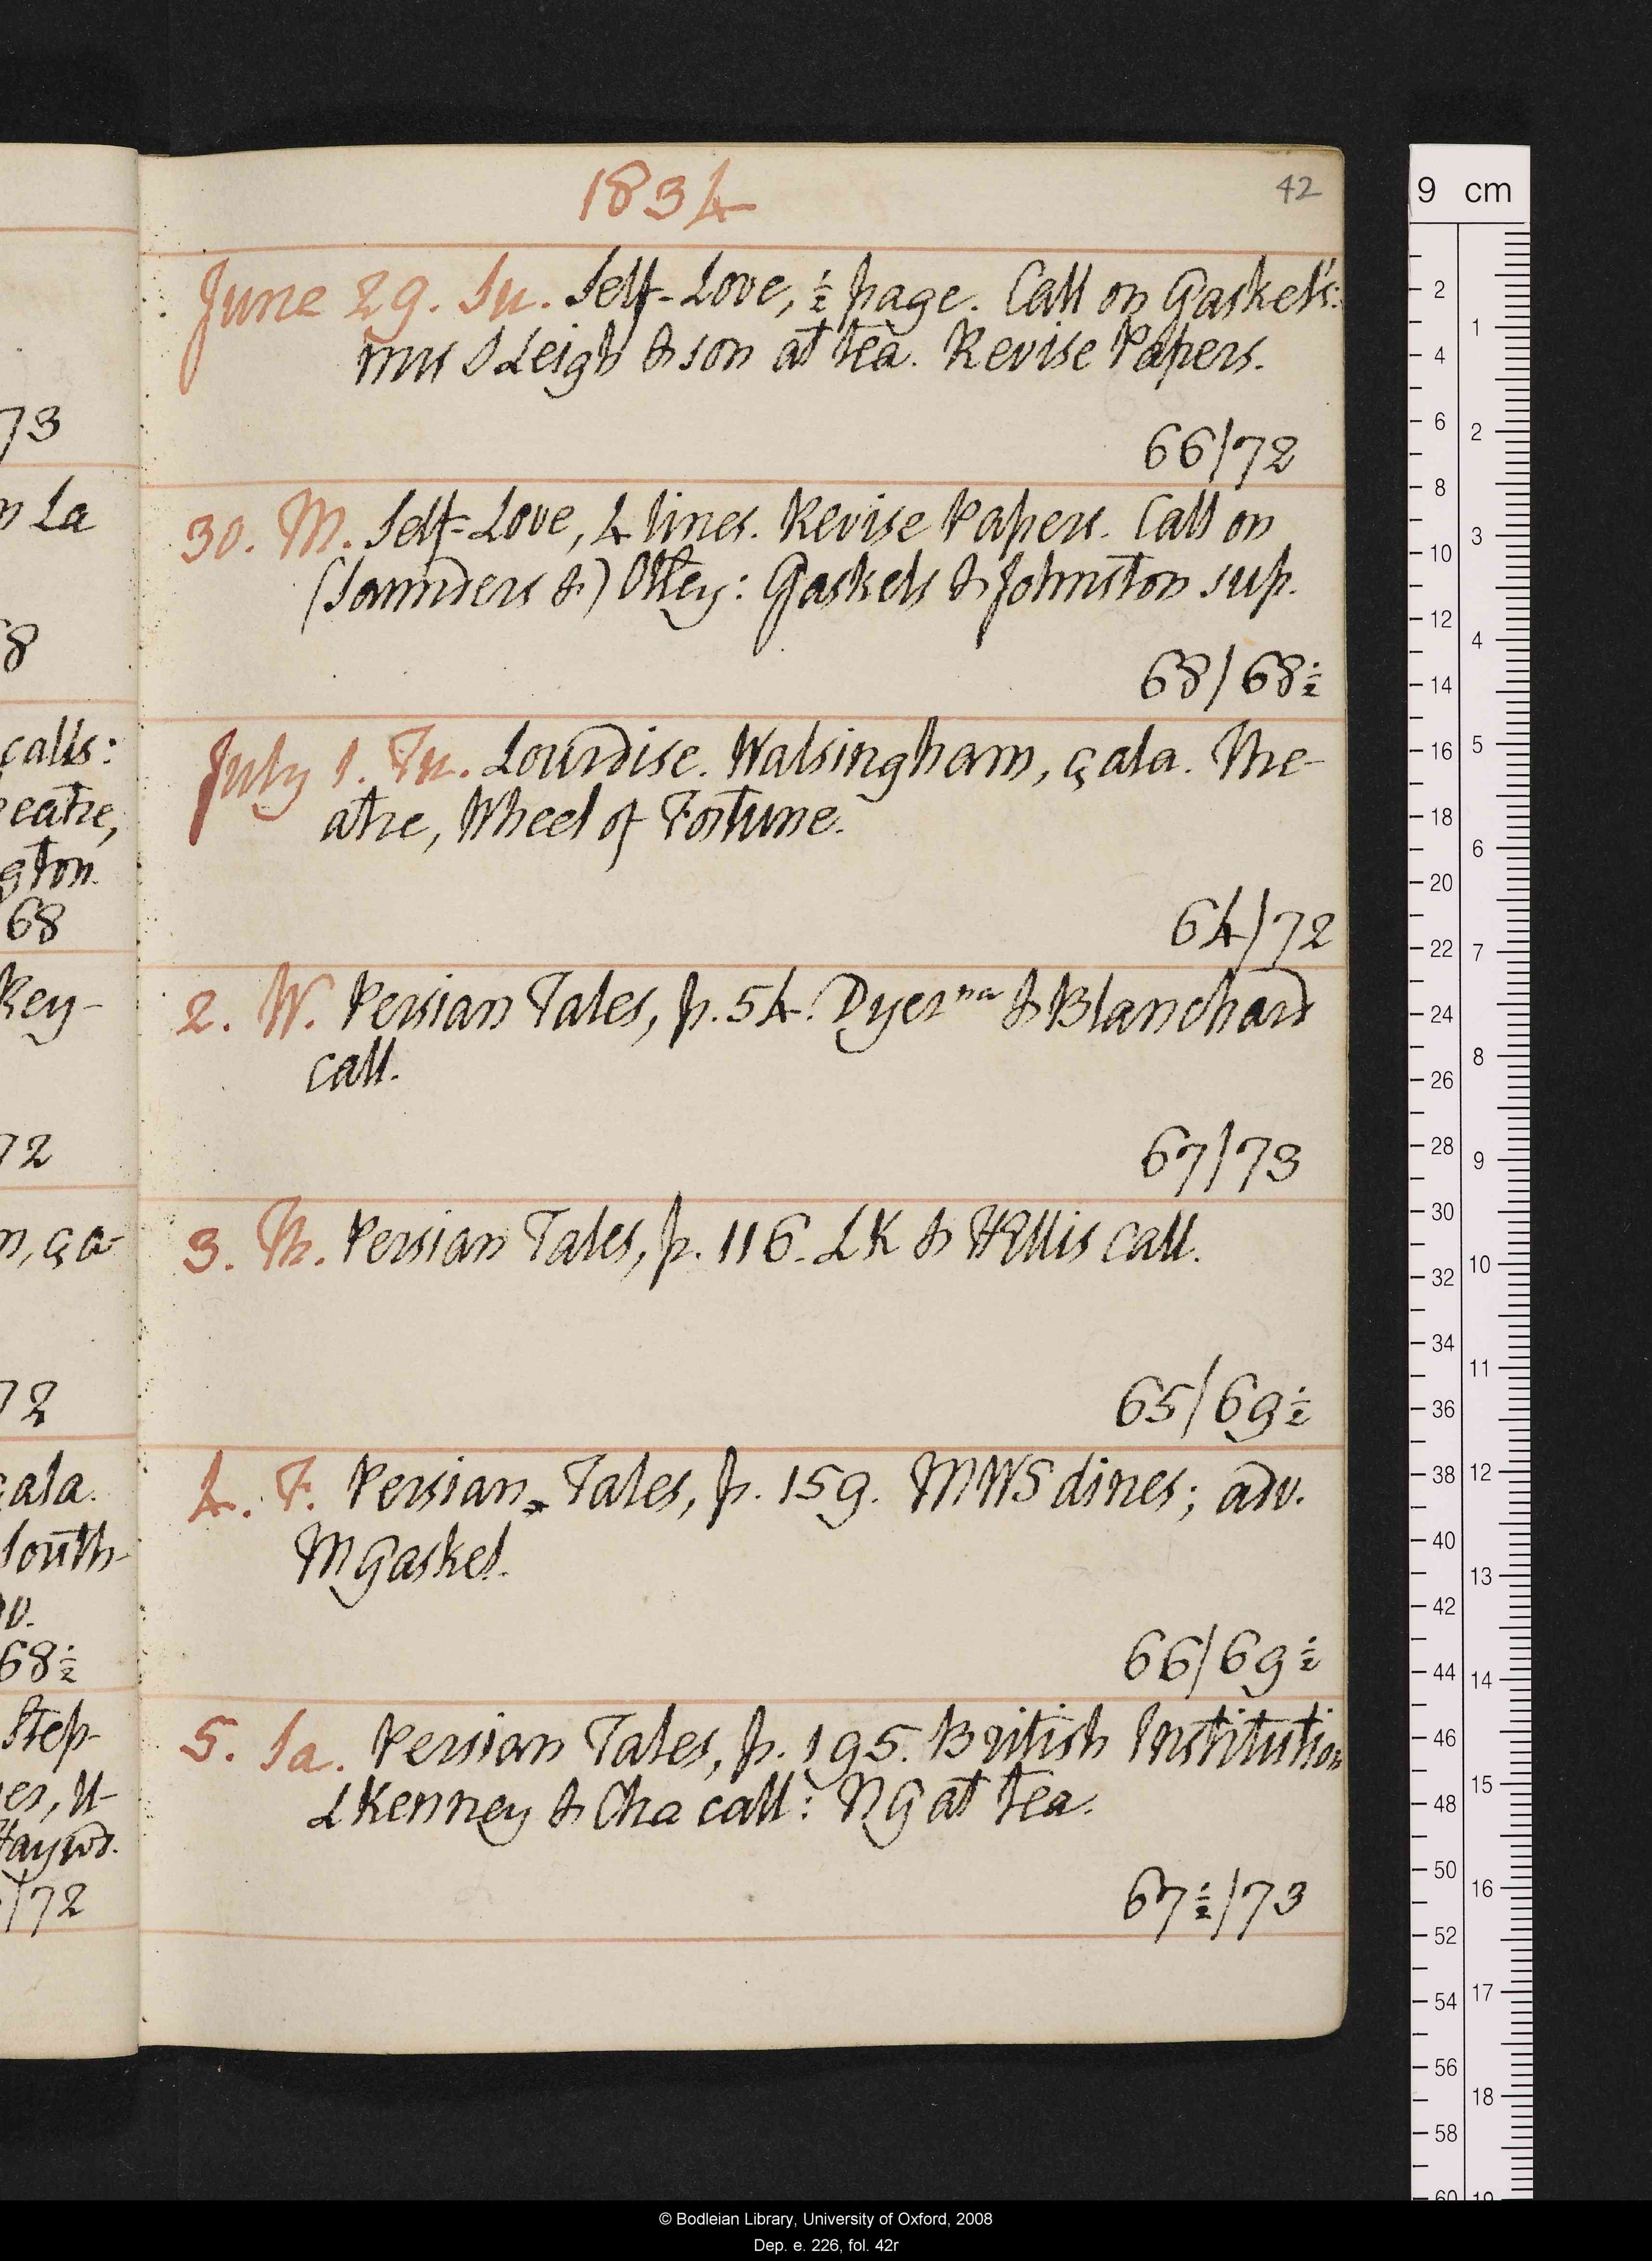 1834
42
June 29. Su. Self-Love, ½ page. Call on Gaskel's:
mrs S Leigh & son at tea. Revise Papers.
66/72
30. M. Self-Love, 4 lines. Revise Papers. Call on
(Saunders &) Otley: Gaskels & Johnston sup.
68/68½
July 1. Tu. Lourdise. Walsingham, çala. The-
atre, Wheel of Fortune.
64/72
2. W. Persian Tales, p. 54. Dyer & Blanchard
call.
67/73
3. Th. Persian Tales, p. 116. LK & HEllis call.
65/69½
4. F. Persian Tales, p. 159. MWS dines; adv.
MGaskel.
66/69½
5. Sa. Persian Tales, p. 195. British Institution
LKenney & Cha call: NG at tea.
67½/73
73
n La
68
çalls:
eatre,
gton.
68
Key-
72
n, ça-
72
çala.
South-
v.
68½
Step-
er, U-
Hayws.
/72
9 cm
2
4
6
8
10
12
14
16
18
20
22
24
26
28
30
32
34
36
38
40
42
44
46
48
50
52
54
56
58
60
1
2
3
4
5
6
7
8
9
10
11
12
13
14
15
16
17
18
19
© Bodleian Library, University of Oxford, 2008
Dep. e. 226, fol. 42r